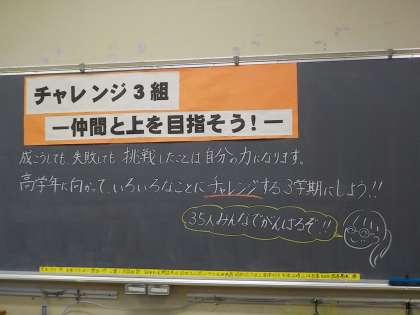 チャレンジ3組
―仲間と上を目指そう!―
成こうしても、失敗しても 挑戦したことは自分の力になります。
高学年に向かって、いろいろなことにチャレンジする3学期にしよう!!
35人みんなでがんばるぞ!!